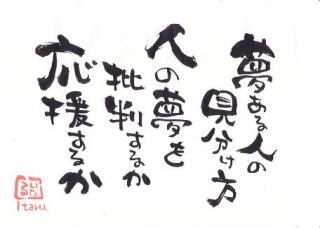 夢ある人の
見分け方
人の夢を
批判するか
応援するか
Itaru